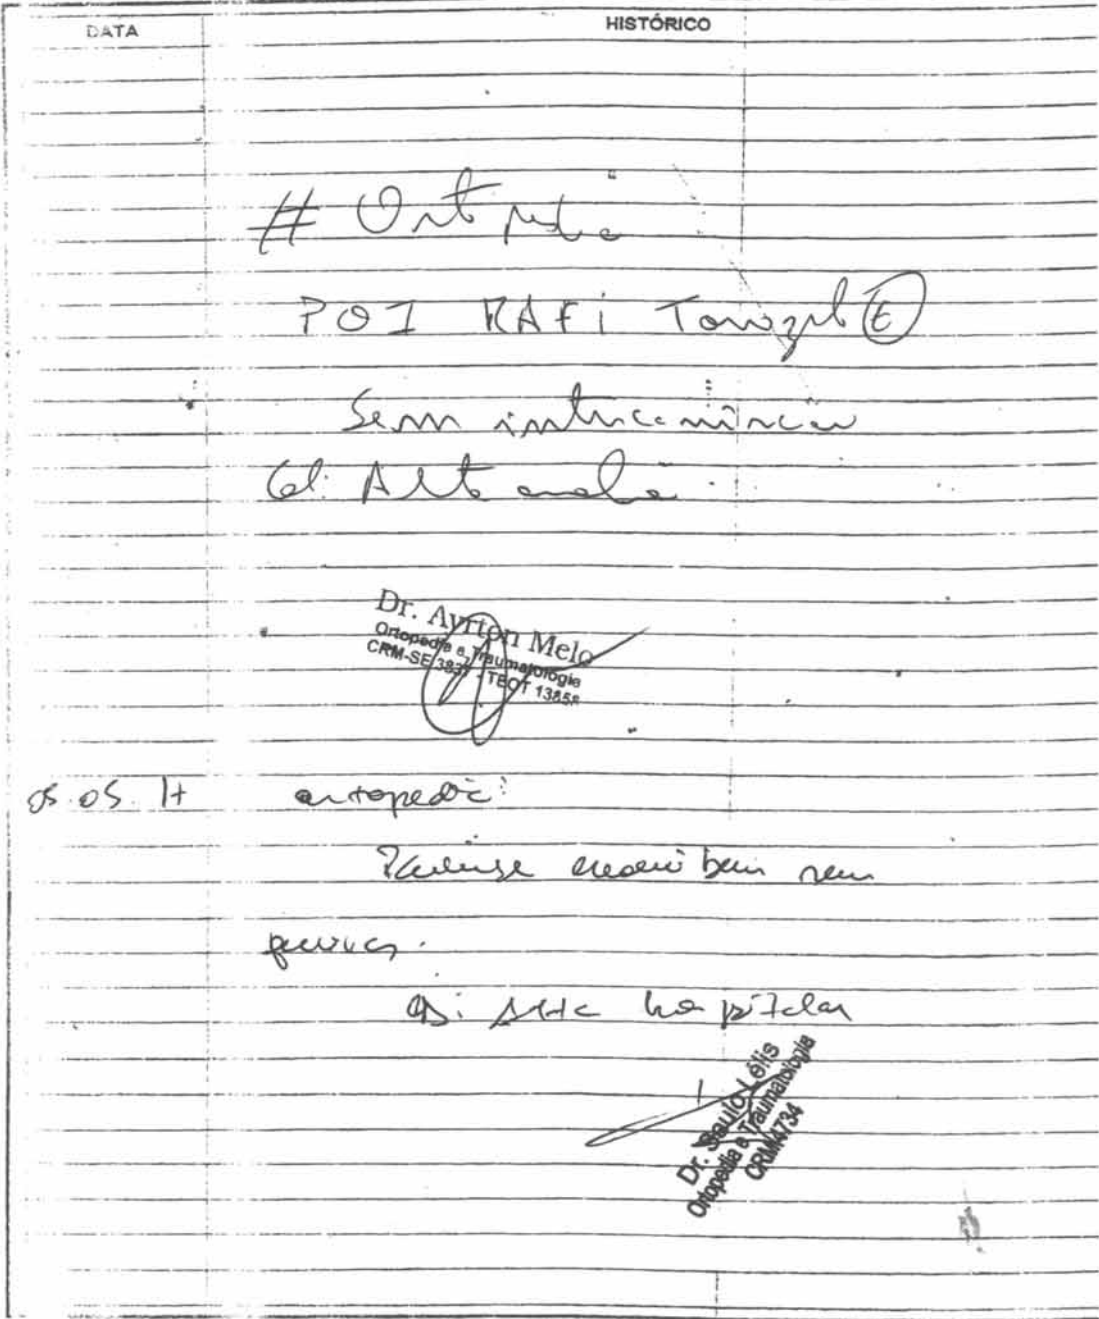 DATA HISTÓRICO
# Ortopedia
POI RAFI Tornozelo (E)
Sem intercorrências
Cd: Alta amanhã
Dr. Ayrton Melo
Ortopedia e Traumatologia
CRM-SE 3837 - TEOT 13858
05.05.17 ortopedia:
evolui bem sem
queixas.
Cd: Alta hospitalar
Dr. Saulo Lélis
Ortopedia e Traumatologia
CRM4734